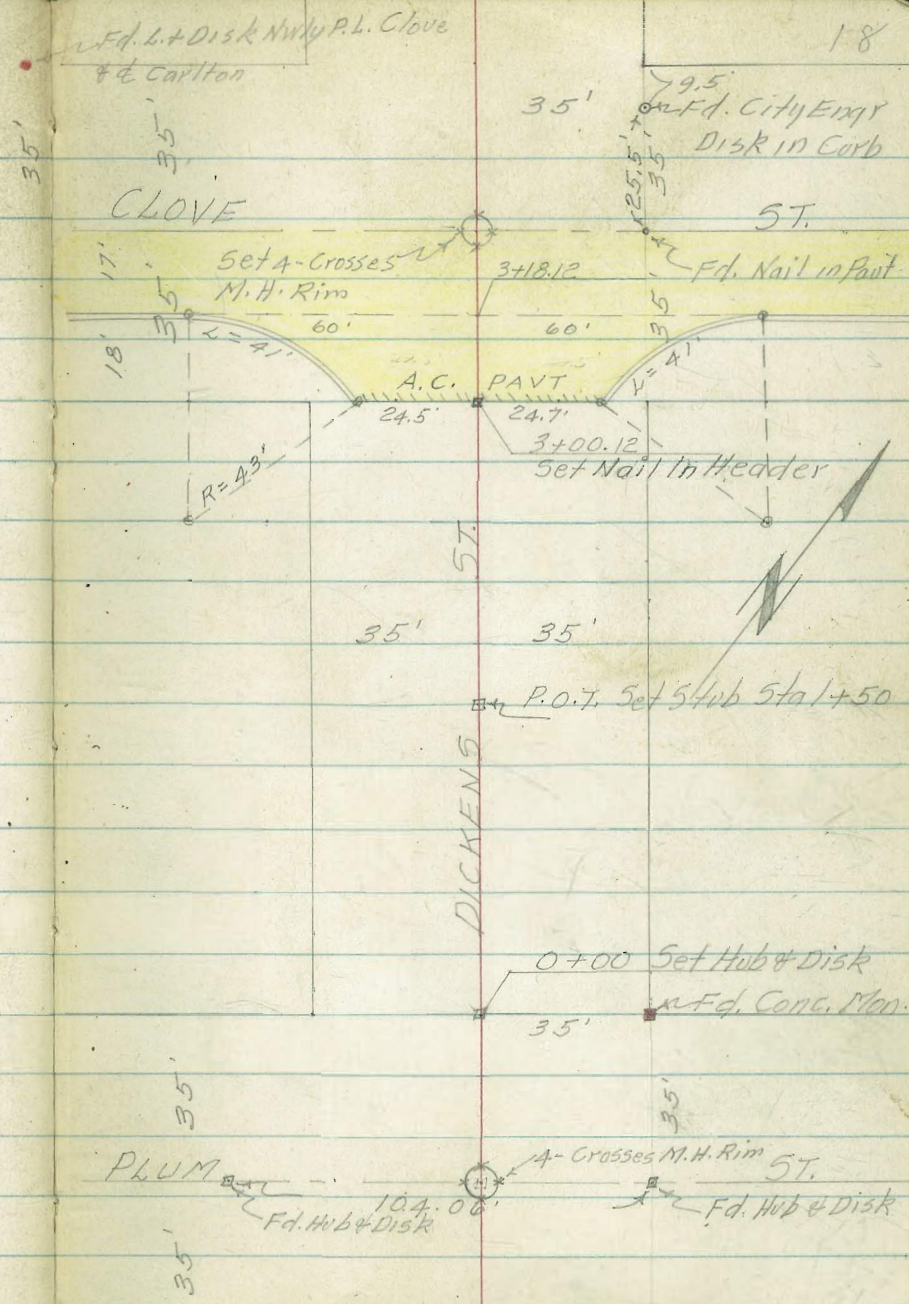 Fd. L.+Disk Nwly P.L. Clove
& ₵ Carlton
18
35'
35'
35'
9.5'
Fd. City Engr
Disk in Curb
25.5'
35'
CLOVE
ST.
17'
Set 4-Crosses
M.H. Rim
3+18.12
Fd. Nail in Pavt
35'
60'
60'
35'
18'
L=41'
L=41'
A.C. PAVT
24.5'
24.7'
3+00.12
Set Nail In Header
R=43'
N
DICKENS ST.
35'
35'
P.O.T. Set Stub Sta 1+50
0+00 Set Hub & Disk
Fd. Conc. Mon.
35'
35'
35'
4-Crosses M.H. Rim
PLUM
ST.
104.06'
Fd. Hub & Disk
Fd. Hub & Disk
35'